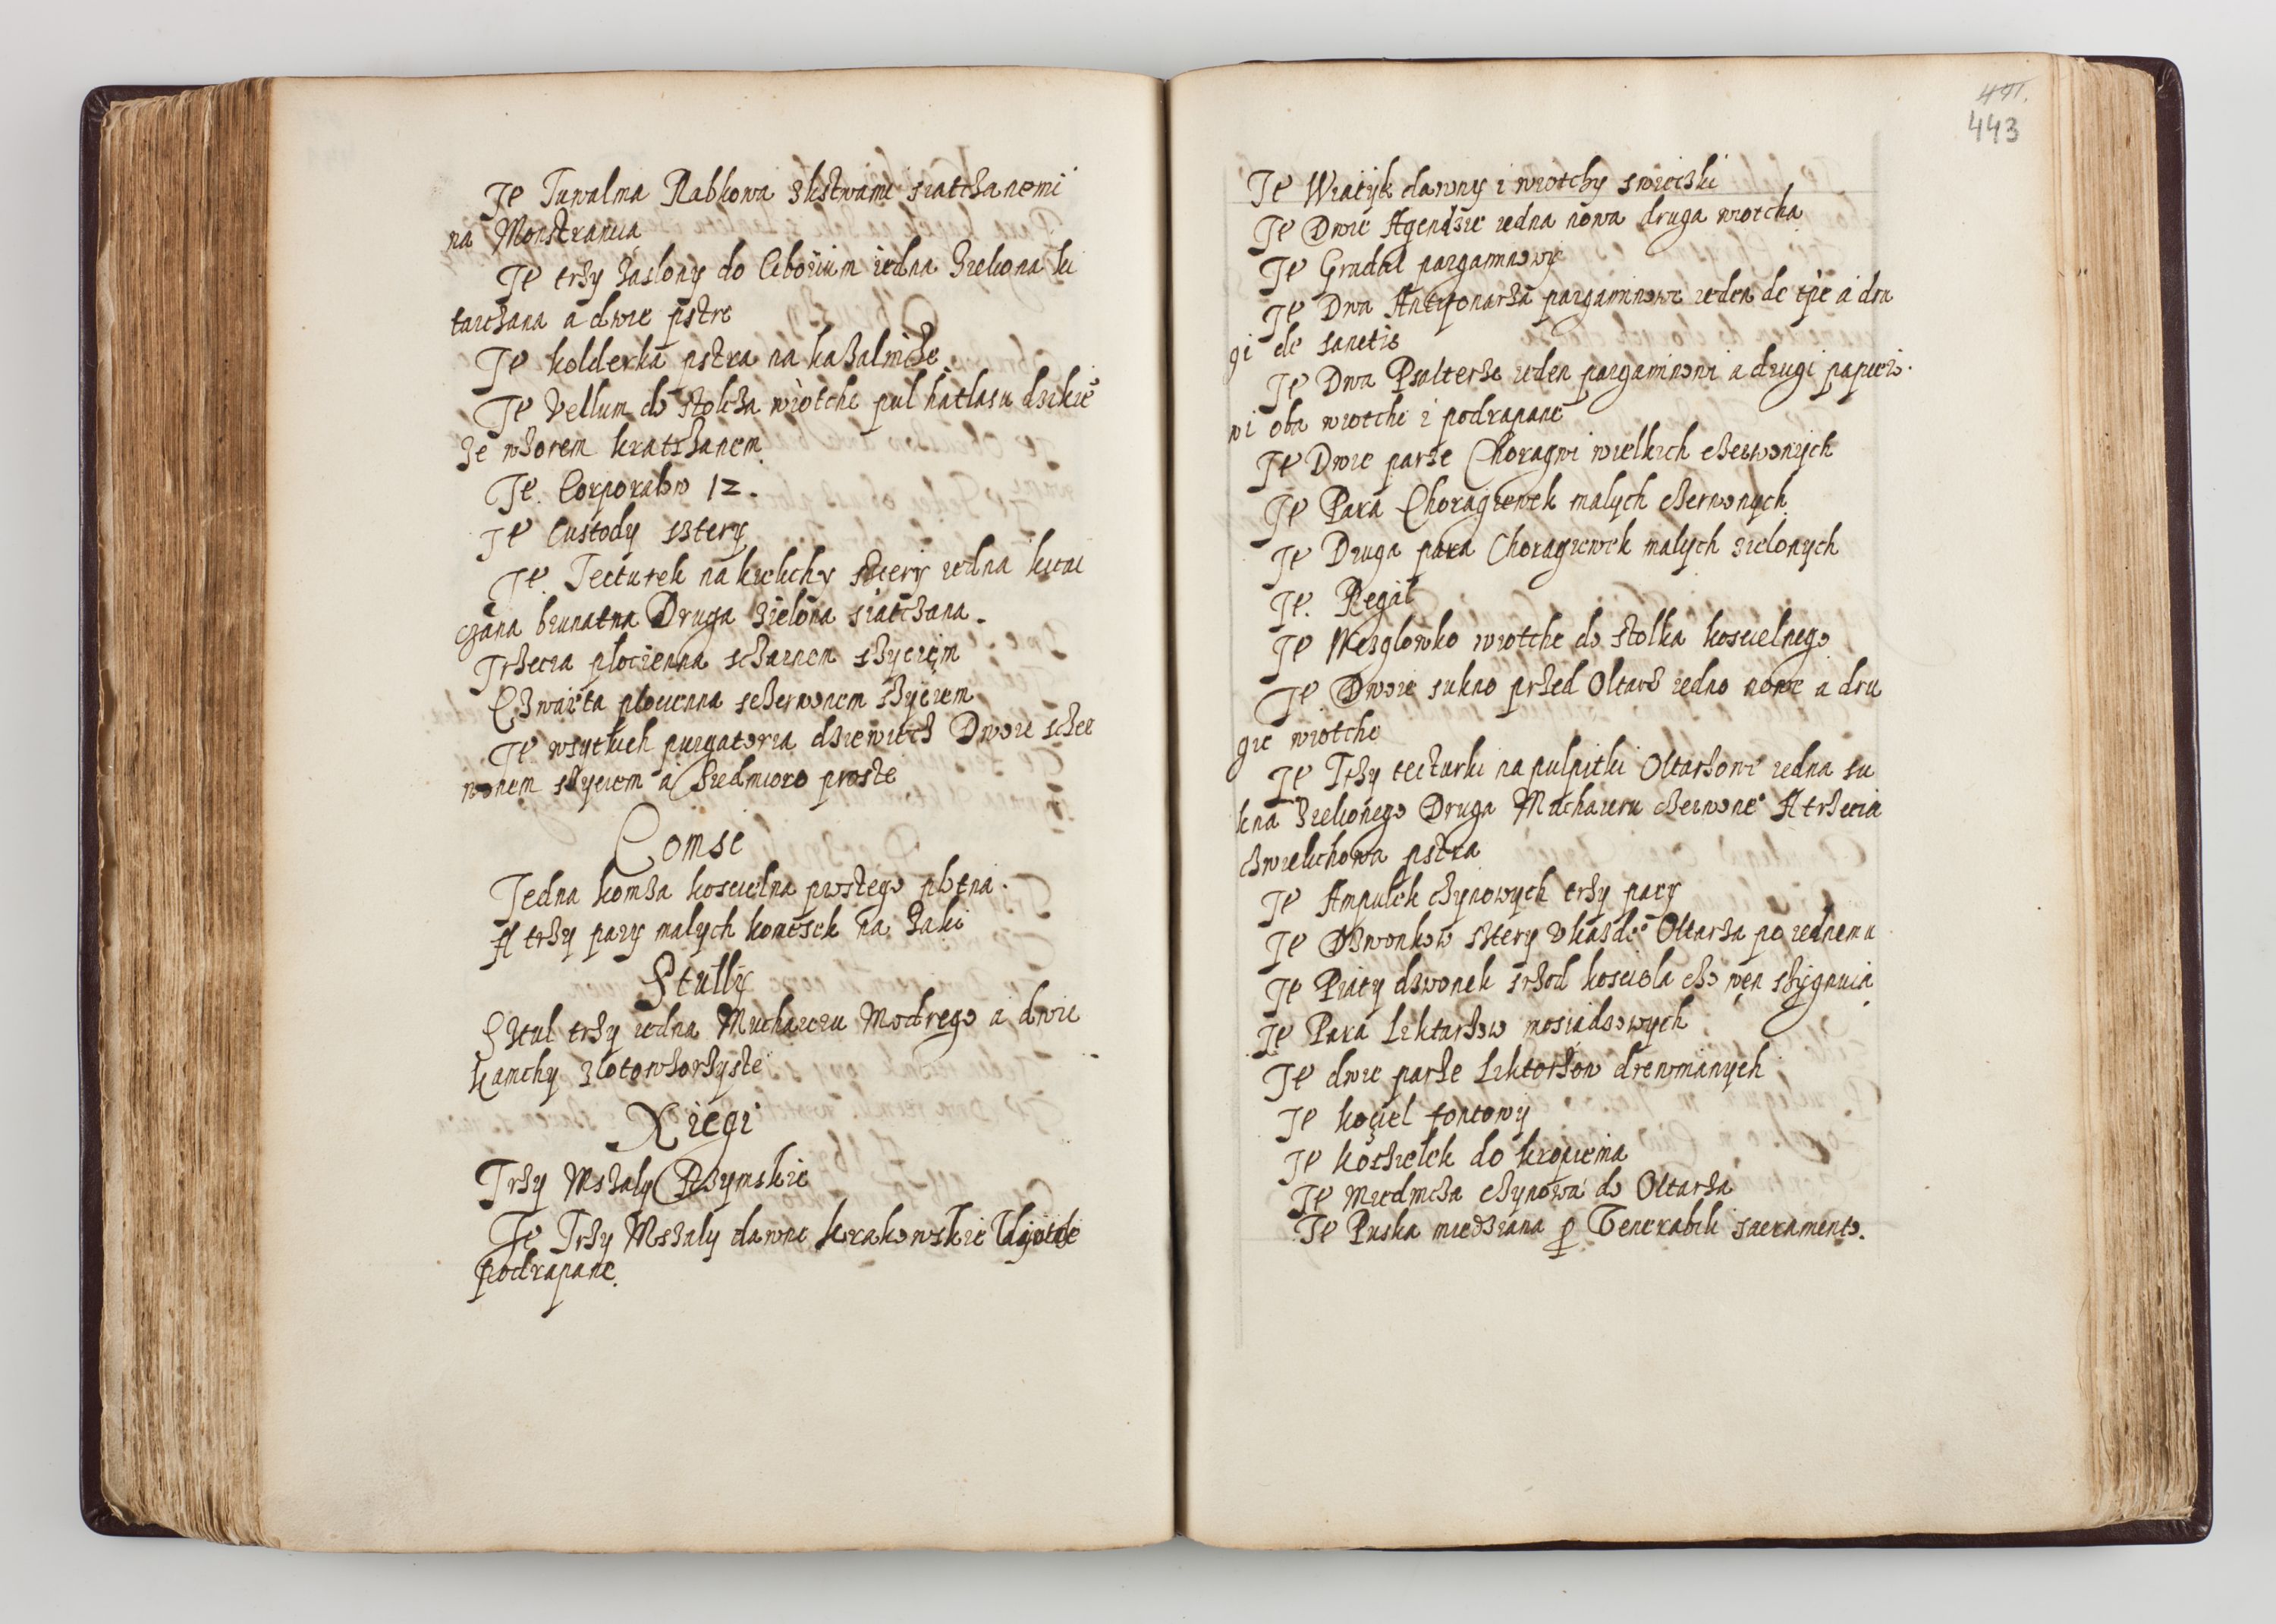 Je Tuwalma Rabkowa zkstwami siatczanemi
na Monstrancią
Je trzy zaslony do Ciborium iedna Zielona ki
taiczana a dwie pstre
Je kolderka pstra na kazalnicze
Je Vellum do stolcza wiotche pul hatlasu dzikie
ze wzorem kratczanem
Je. Corporalow 12.
Je Custody sztery
Je. Tecturek na kielichy sztery iedna kitai
czana brunatna Druga zielona siatczana.
Trzecia plocienna sczarnem szyciem
Czwarta plocienna sczerwonem szyciem
Je wsytkich purgatoria dziewiecz Dwoie sczer
wonem szyciem a Siedmioro proste
Comse
Jedna komza koscielna prostego plotna.
A trzy pary malych komesek na zaki
Stully
Sztul trzy iedna Muchaieru Modrego a dwie
kamchy zlotowzorzyste
Xiegi
Trzy Mszaly Rzymskie
Je Trzy Mszaly dawne krakowskie
podrapane.
441.
443
Je Wiatyk dawny i wiotchy swiecski
Je Dwie Agendzie iedna nowa druga wiotcha
Je Gradal pargaminowy
Je Dwa Antyfonarza pargaminowe ieden de tpe a dru
gi de sanctis
Je Dwa Psalterze ieden pargaminowi a drugi papiero.
wi oba wiotche i podrapane
Je Dwie parze Choragwi wielkich czerwonych
Je Para Choragiewek malych czerwonych
Je Druga para Choragiewek malych zielonych
Je. Regal
Je Wezglowko wiotche do stolka koscielnego
Je Dwoie sukno przed Oltarz iedno nowe a dru
gie wiotche
Je Trzy tecturki na pulpitki Oltarzowe iedna su
kna Zielonego Druga Muchaieru czerwone° A trzecia
czwielichowa pstra
Je Ampulek czynowych trzy pary
Je Dzwonkow sztery v kazde° Oltarza po iednemu
Je Piąty dzwonek srzod kosciola czo wen szygnuią
Je Para Liktarzow mosiądzowych
Je dwie parze Liktorzow drewnianych
Je kociel fontowy
Je koczielek do kropienia
Je Miednicza czynowa do Oltarza
Je Puska miedziana p Venerabili sacramento.